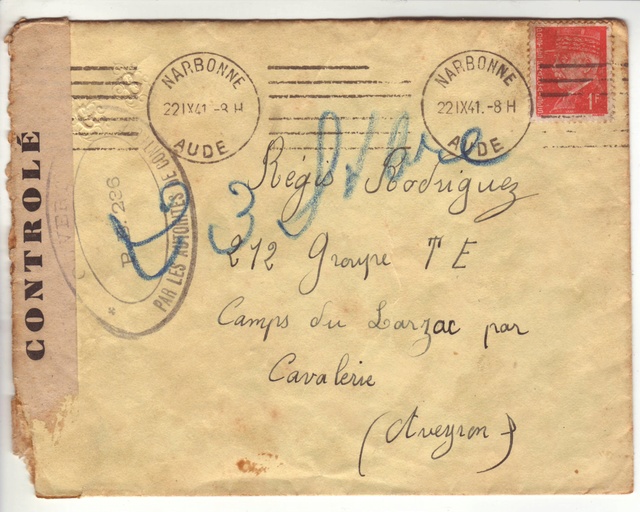 NARBONNE
22 IX 41. -8 H
AUDE
NARBONNE
22 IX 41. -8 H
AUDE
1F
CONTROLE
PAR LES AUTORITES DE CONT
3
Régis Rodriguez
272 Groupe T E
Camps du Larzac par
Cavalerie
(Aveyron)